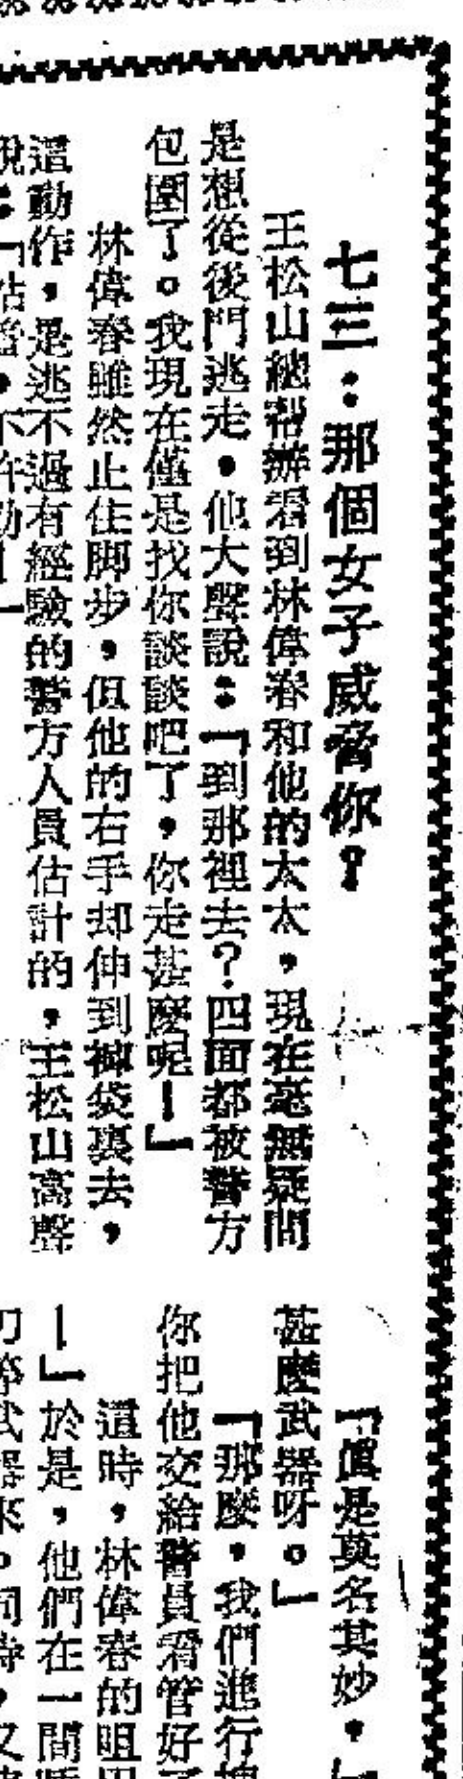 七三：那個女子威脅你？
王松山總幫辦看到林偉春和他的太太，現在毫無疑問
是想從後門逃走，他大聲說：「到那裡去？四面都被警方
包圍了。我現在僅是找你談談吧了，你走甚麼呢！」
林偉春雖然止住脚步，但他的右手却伸到褲袋裏去，
這動作，是逃不過有經驗的警方人員估計的，王松山高聲
說：「站着，不許動！」
「眞是莫名其妙，
甚麼武器呀。」
「那麼，我們進行
你把他交給警員看管好了
這時，林偉春的咀
！」於是，他們在一間
刀等武器來。同時，又